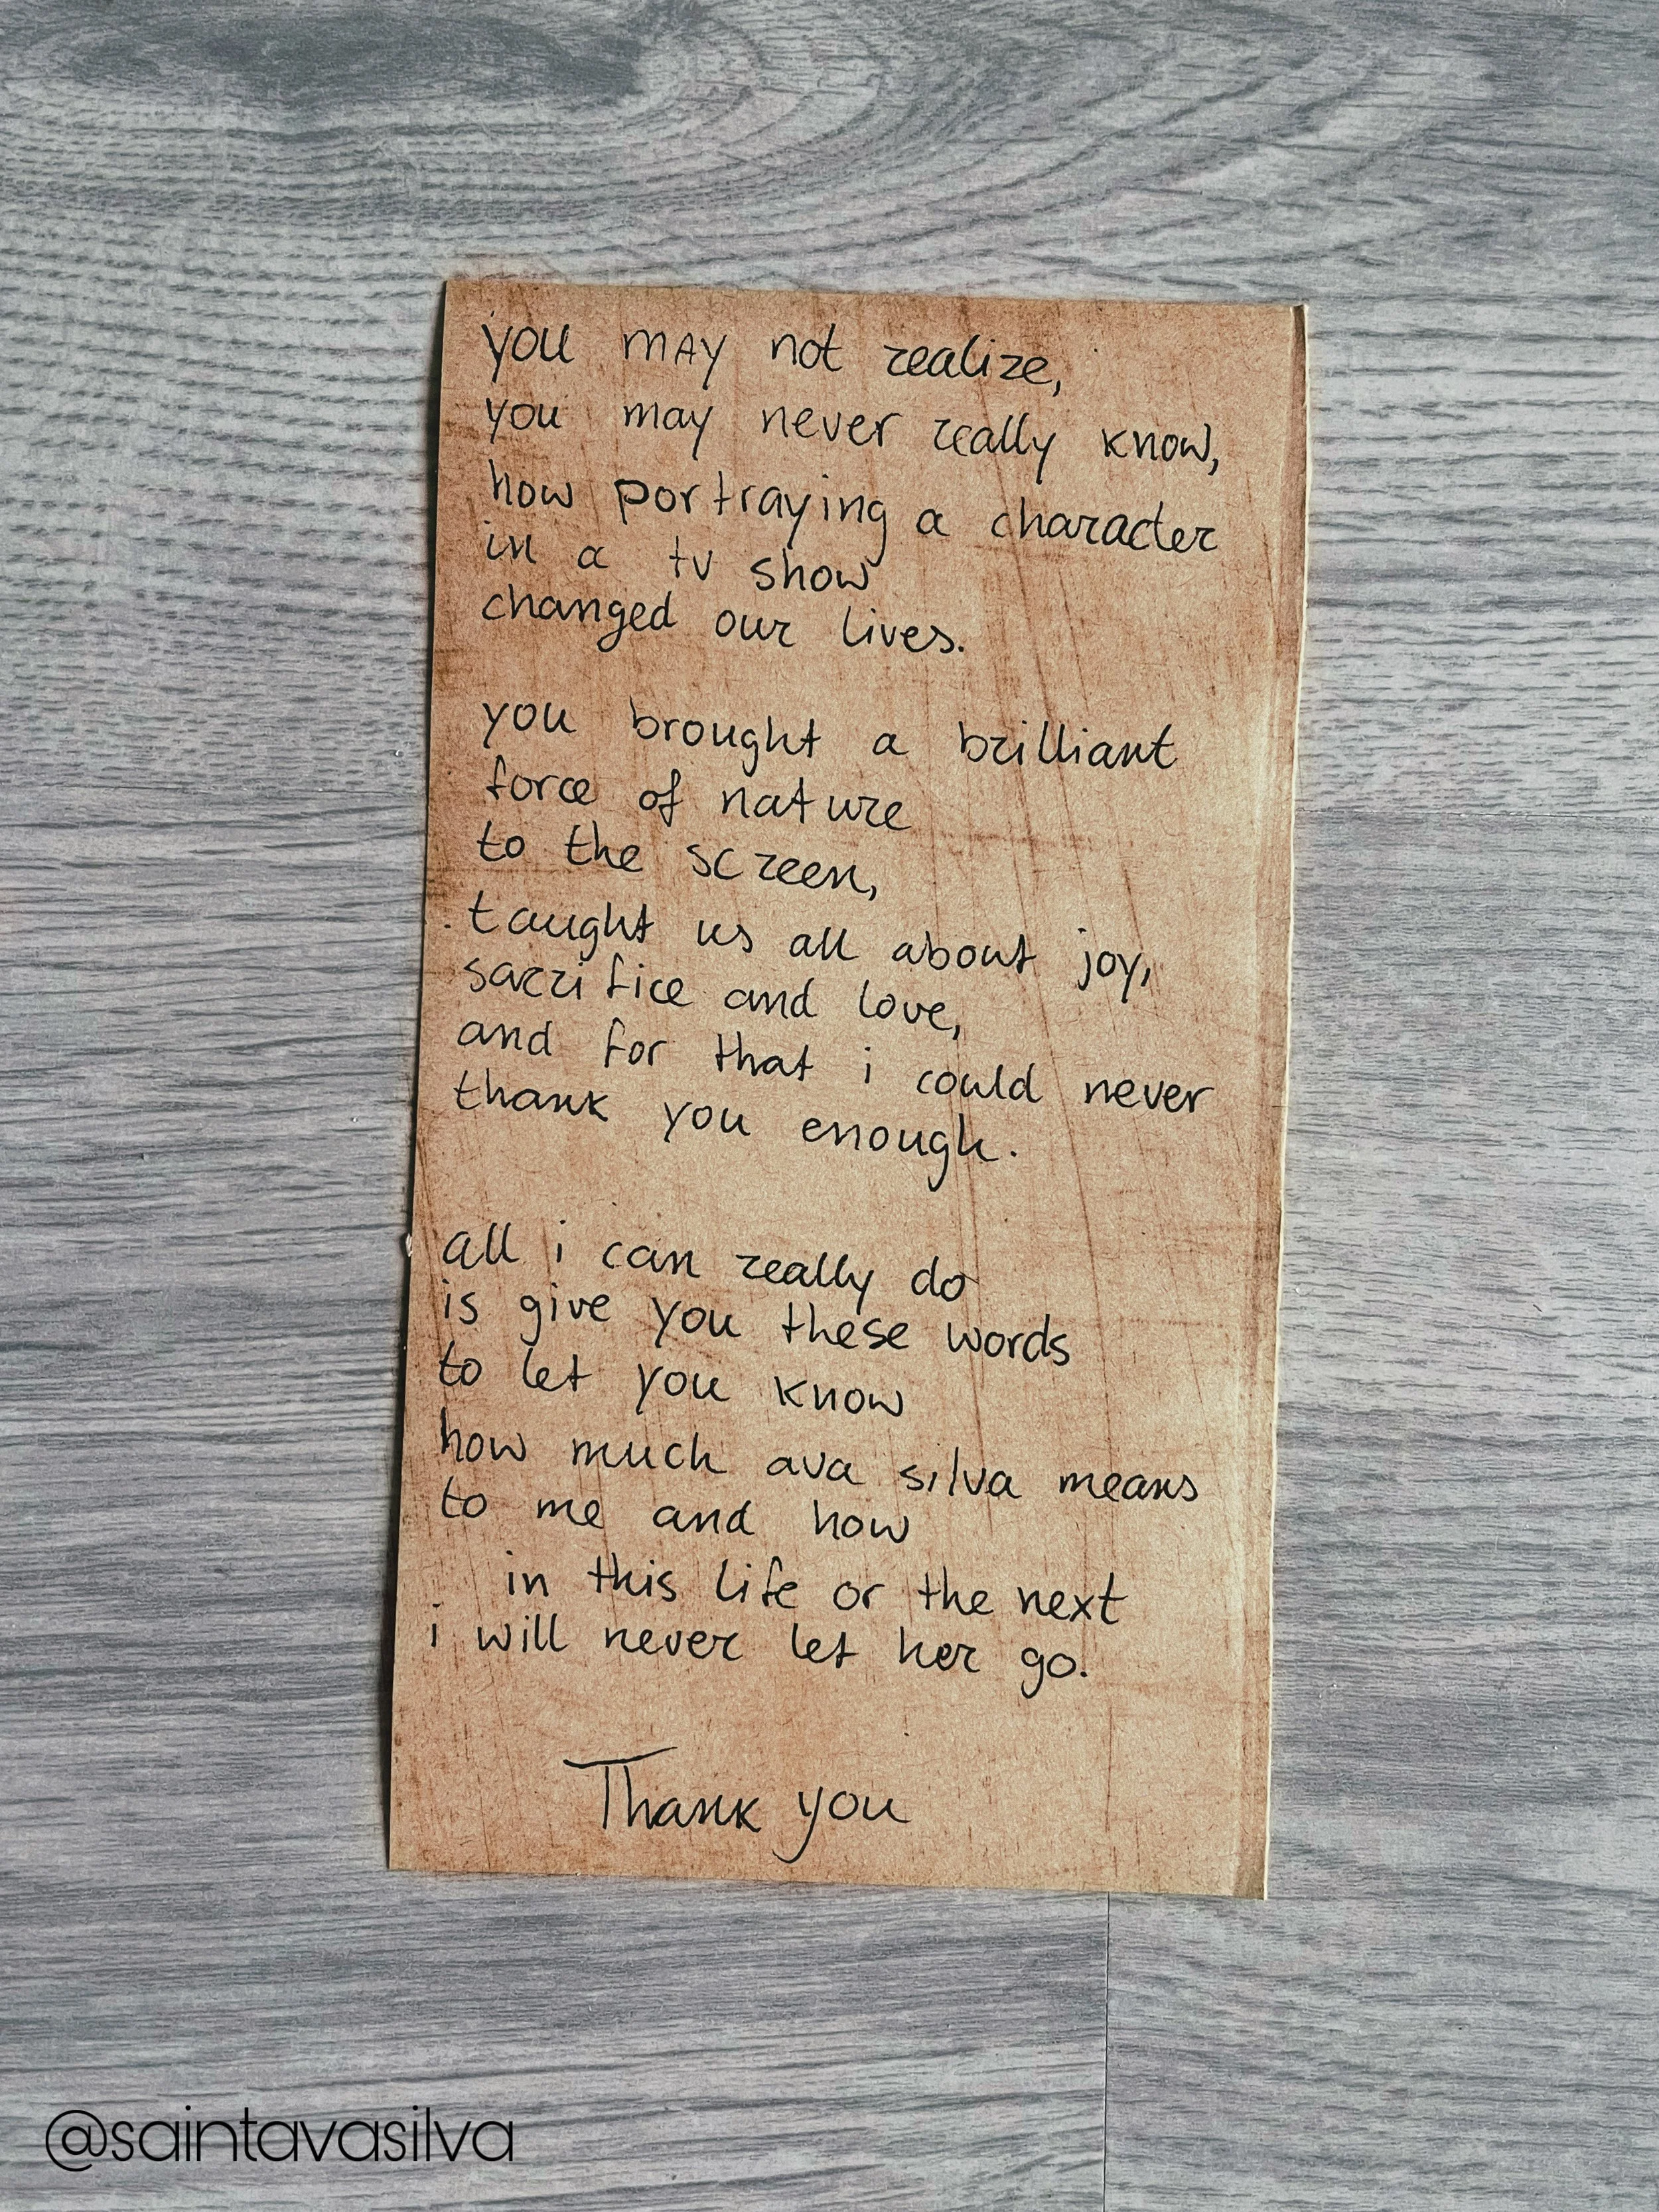 you may not realize,
you may never really know,
how portraying a character
in a tv show
changed our lives.
you brought a brilliant
force of nature
to the screen,
taught us all about joy,
sacrifice and love,
and for that i could never
thank you enough.
all i can really do
is give you these words
to let you know
how much ava silva means
to me and how
in this life or the next
i will never let her go.
Thank you
@saintavasilva